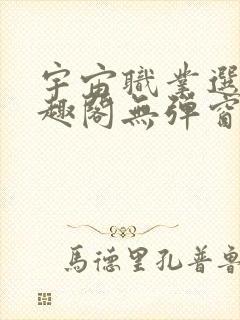 宇宙職業選
趣閣無彈窗
馬德里孔普魯